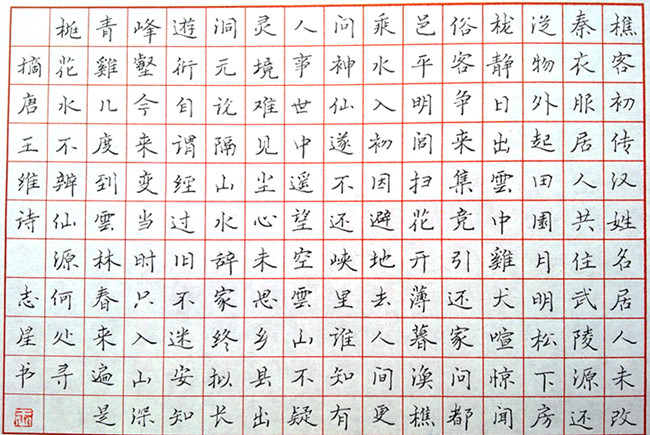 樵客初传汉姓名居人未改
秦衣服居人共住武陵源还
從物外起田园月明松下房
栊静日出雲中雞犬喧惊闻
俗客争来集竞引还家问都
邑平明闾扫花开薄暮渔樵
乘水入初因避地去人间更
问神仙遂不还峡里谁知有
人事世中遥望空雲山不疑
灵境难见尘心未思乡县出
洞无论隔山水辞家终拟长
遊衍自谓经过旧不迷安知
峰壑今来变当时只入山深
青雞几度到雲林春来遍是
桃花水不辨仙源何处寻
摘唐王维诗 志星书